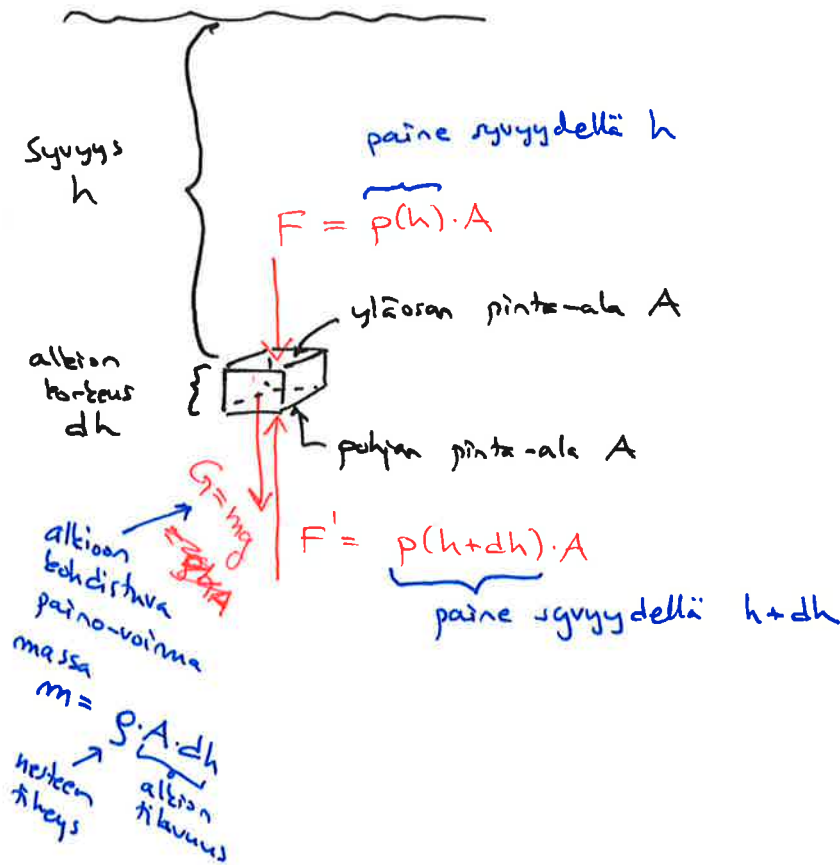 paine syvyydellä h
Syvyys
h
F = p(h)·A
yläosan pinta-ala A
alkion
korkeus
dh
pohjan pinta-ala A
G=mg
F' = p(h+dh)·A
paine syvyydellä h+dh
alkioon
kohdistuva
paino-voima
massa
m =
ρ·A·dh
nesteen
tiheys
alkion
tilavuus